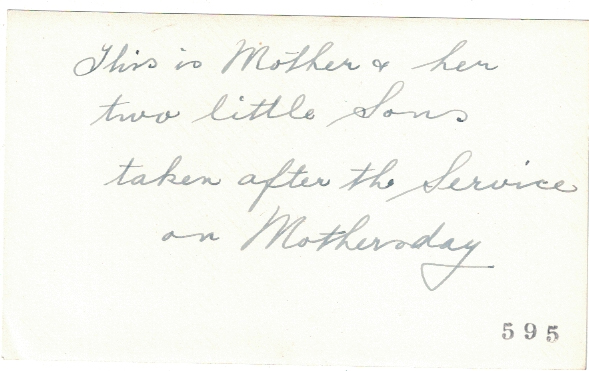 This is Mother & her
two little Sons
taken after the Service
on Mothersday
595